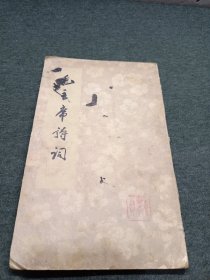 毛主席诗词